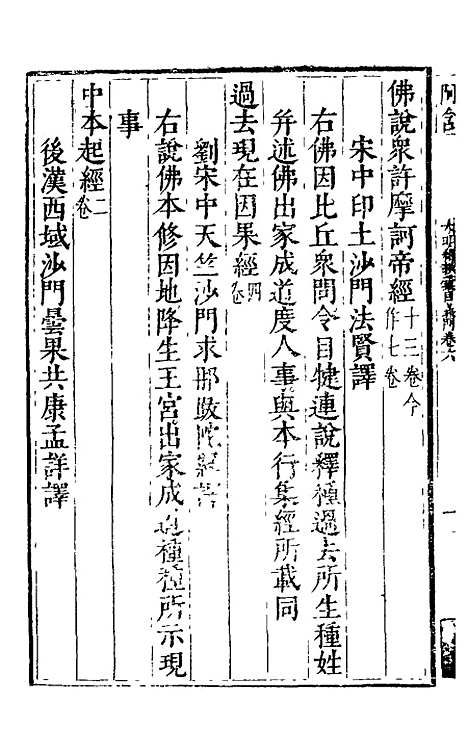 佛說衆許摩訶帝經十三卷今作七卷
宋中印土沙門法賢譯
右佛因比丘衆問令目犍連說釋種過去所生種姓
幷述佛出家成道度人事與本行集經所載同
過去現在因果經四卷
劉宋中天竺沙門求那跋陀羅譯
右說佛本修因地降生王宮出家成道種種所示現
事
中本起經二卷
後漢西域沙門曇果共康孟詳譯